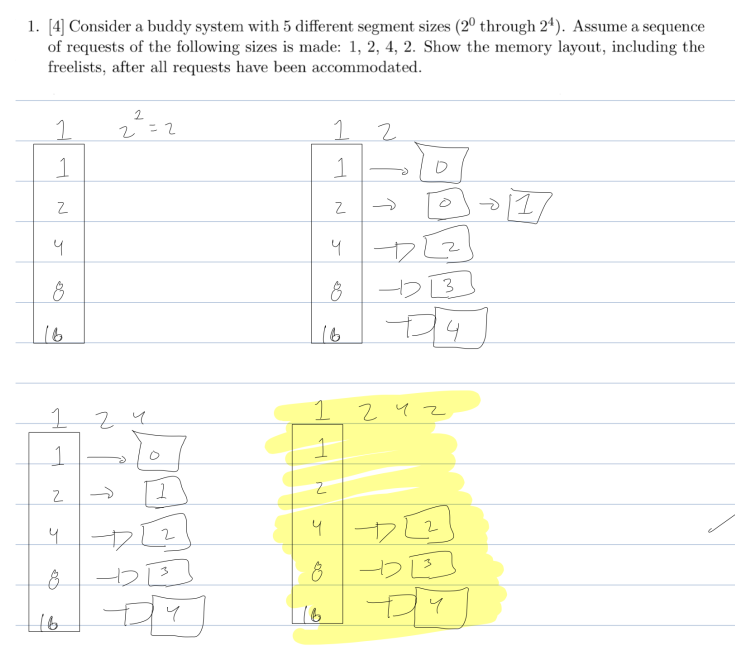 1. [4] Consider a buddy system with 5 different segment sizes (2⁰ through 2⁴). Assume a sequence
of requests of the following sizes is made: 1, 2, 4, 2. Show the memory layout, including the
freelists, after all requests have been accommodated.
1 2² = 2
1
2
4
8
16
1 2
1 → 0
2 → 0 → 1
4 → 2
8 → 3
16 → 4
1 2 4
1 → 0
2 → 1
4 → 2
8 → 3
16 → 4
1 2 4 2
1
2
4 → 2
8 → 3
16 → 4